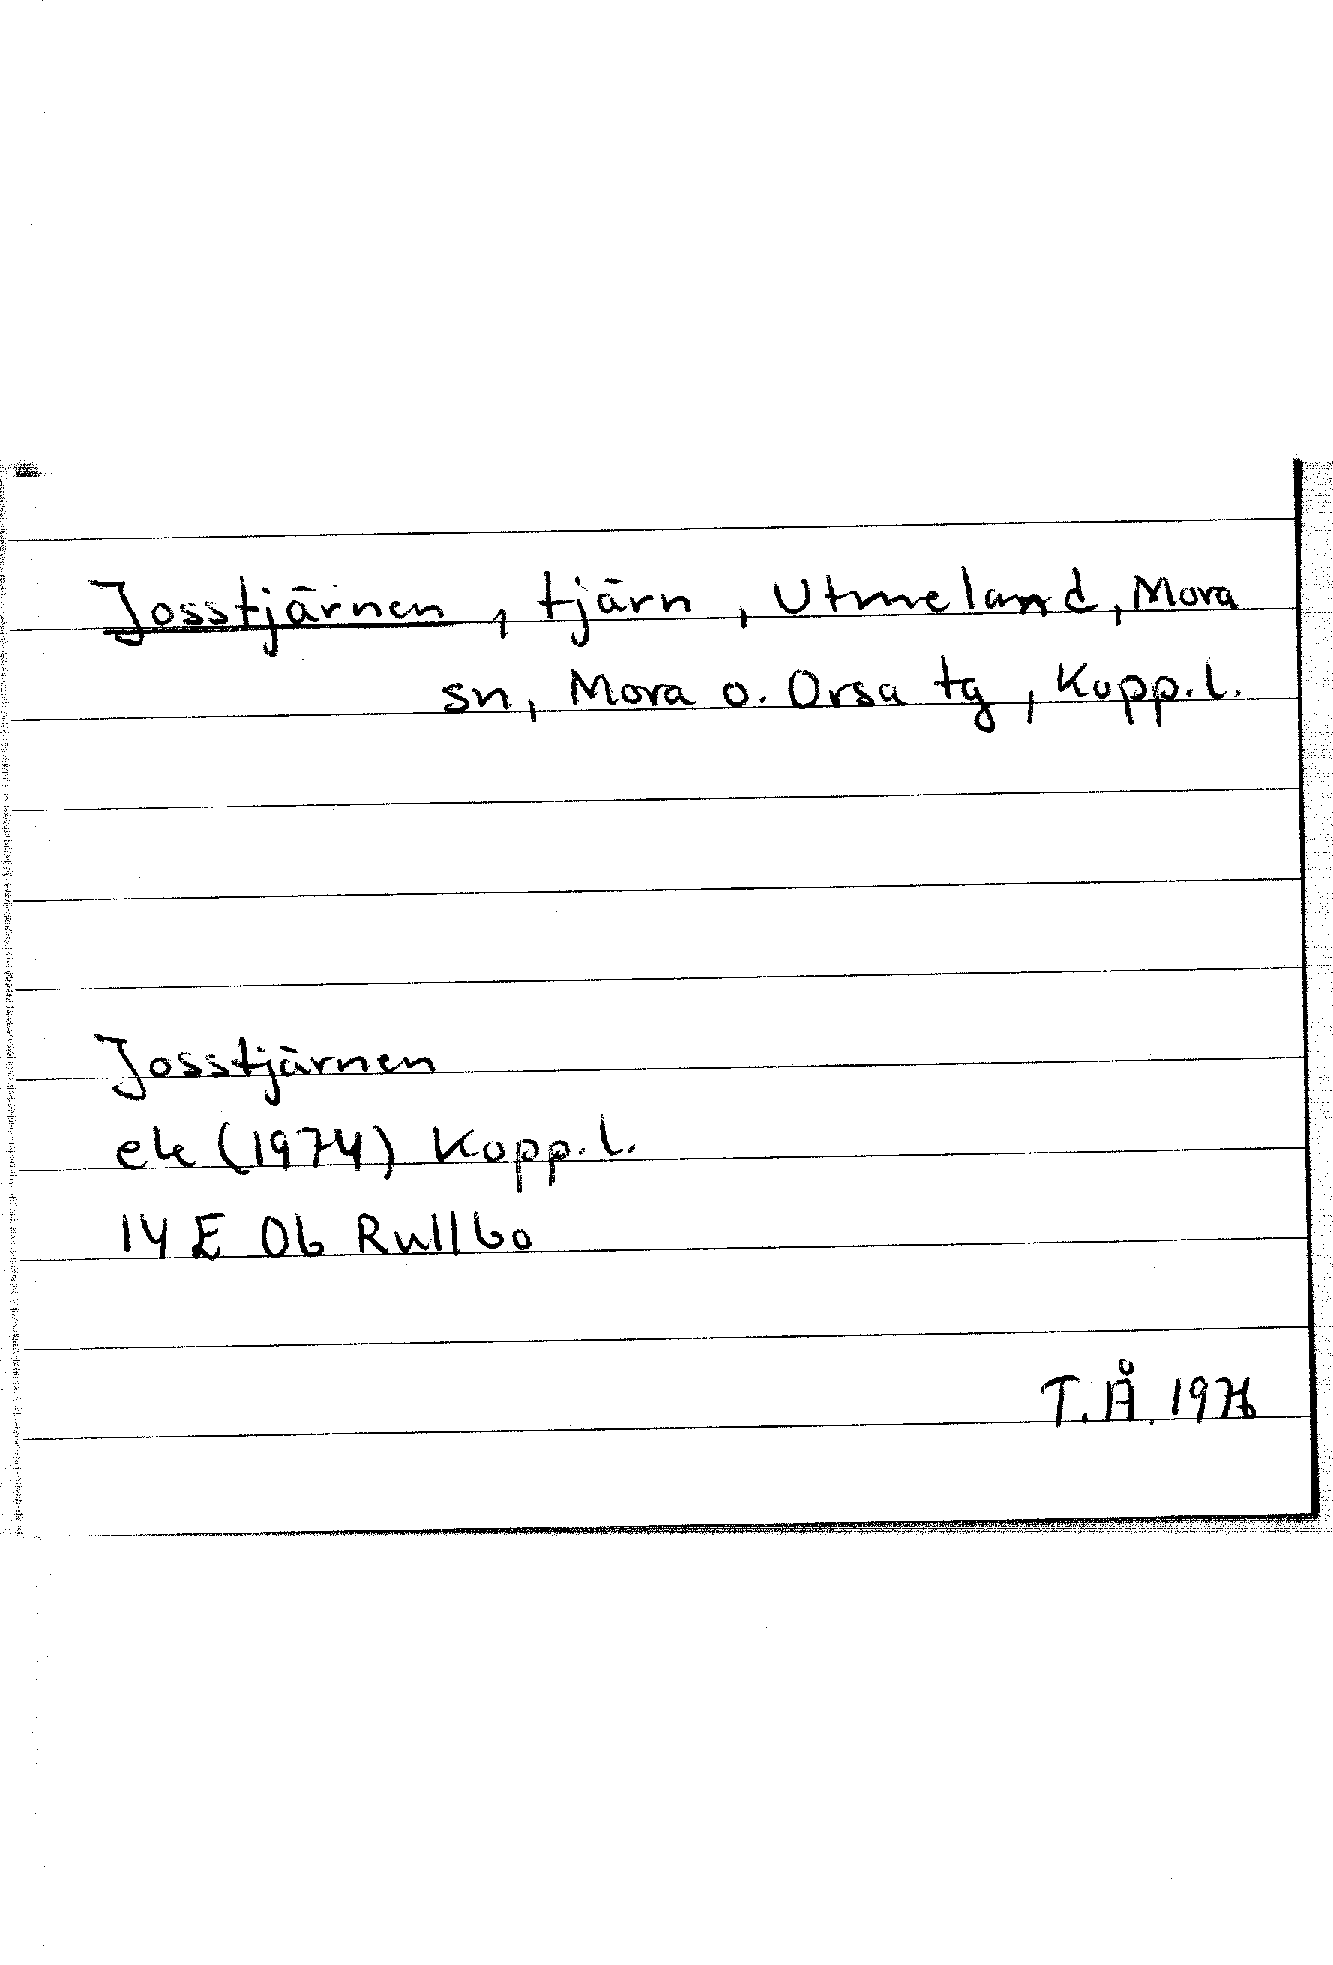 Josstjärnen, tjärn, Utmeland, Mora
sn, Mora o. Orsa tg, Kopp.l.
Josstjärnen
ek (1974) Kopp.l.
14 E 0b Rullbo
T.Å. 1976